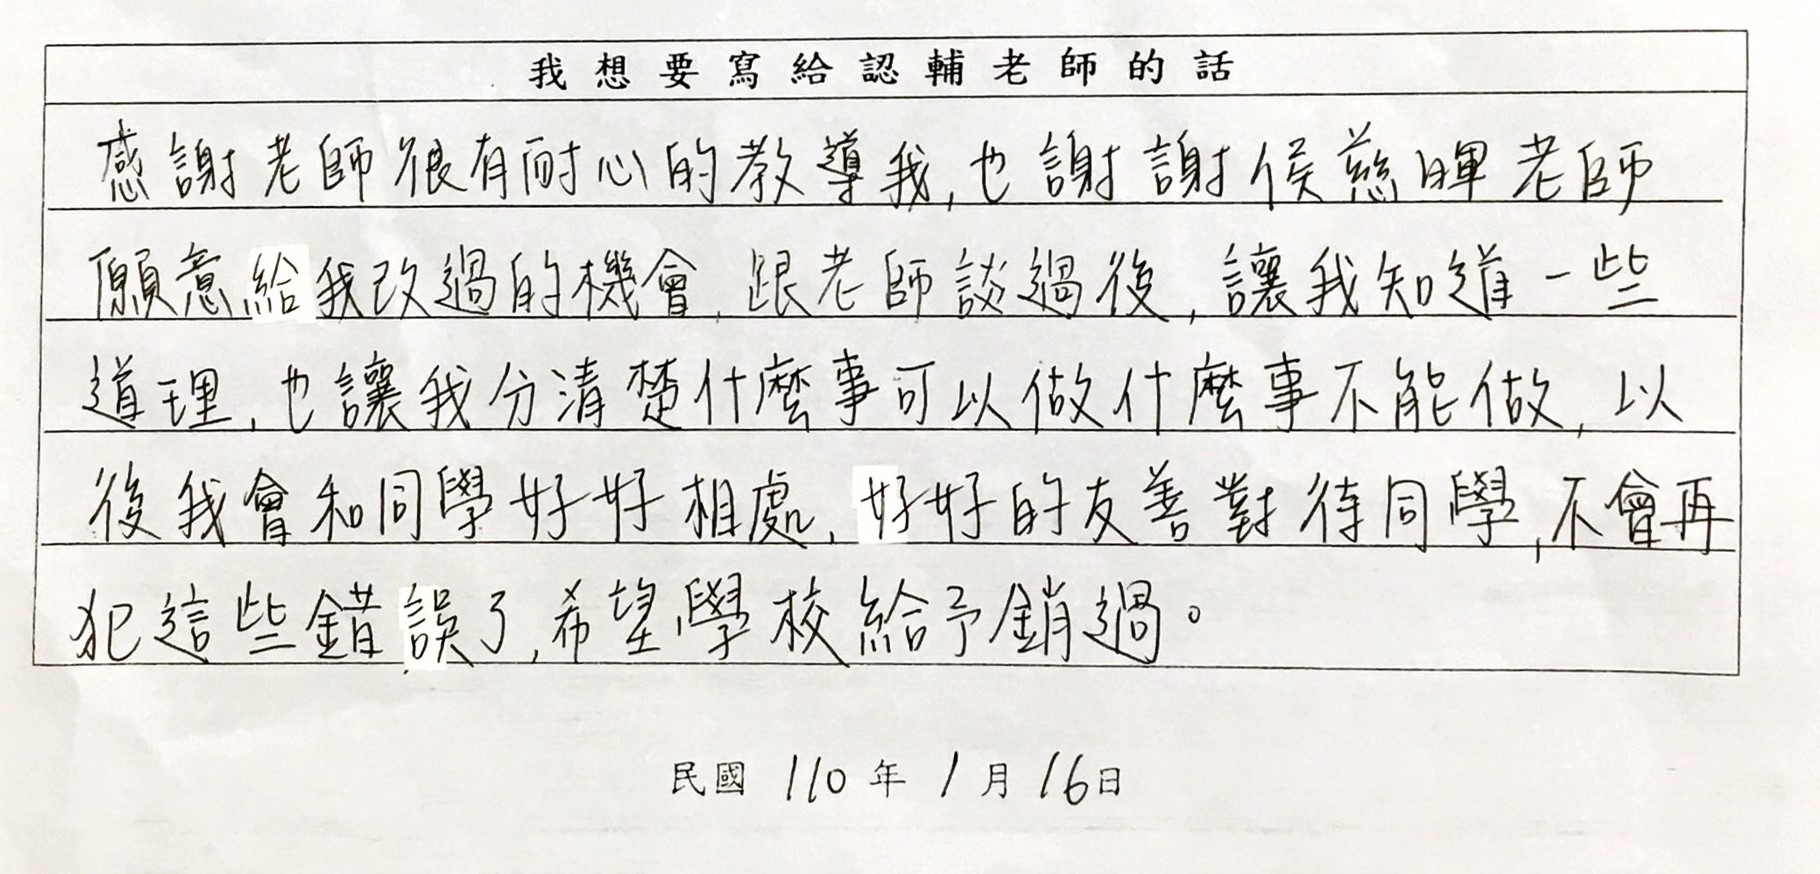 我想要寫給認輔老師的話
感謝老師很有耐心的教導我,也謝謝侯慈暉老師
願意給我改過的機會,跟老師談過後,讓我知道一些
道理,也讓我分清楚什麼事可以做什麼事不能做,以
後我會和同學好好相處,好好的友善對待同學,不會再
犯這些錯誤了,希望學校給予銷過。
民國 110 年 1 月 16 日